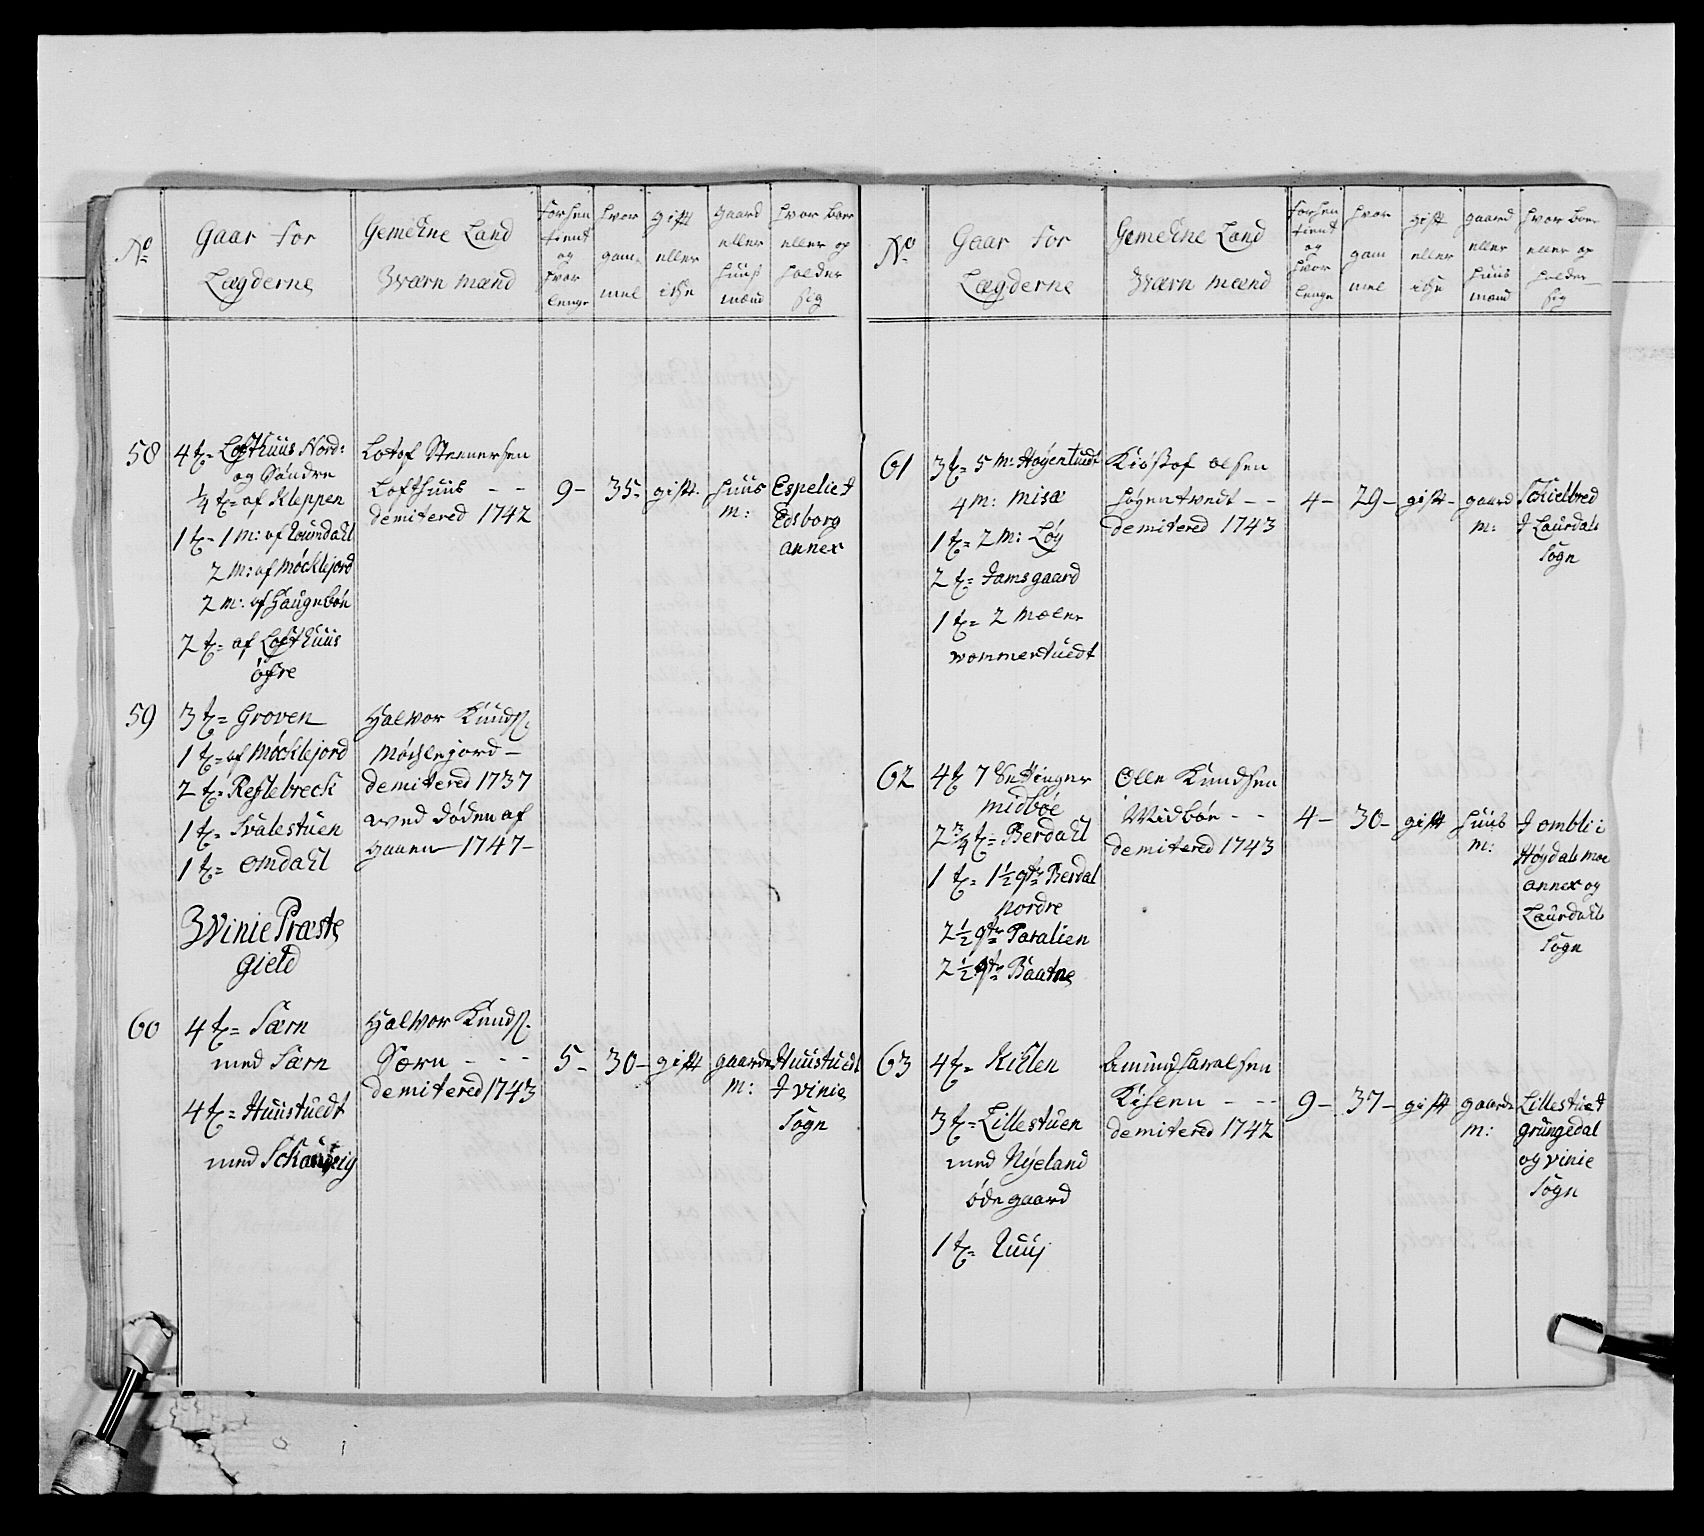 No
Gaar for
Lægderne
Gemehne Land
Wærn mænd
forhen
tient
og
hvor
lenge
hvor
gam
mel
gift
eller
iche
gaard
eller
huus
mænd
hvor boer
eller op
holder
sig
58
4 t= Lofthuus Nord:
og Søndre
1/4 t= af Kleppen
1 t- 1 m: af Roumdahl
2 m: af Møcklejord
2 m: af Haugebøn
2 t= af Lofthuus
øfre
Lotof Steenersen
Lofthuus - -
demitered 1742
9-
35-
gift-
huus
m:
Espelie J
Edsborg
annex
59
3 t= Groven
1 t= af Møcklejord
2 t= Reslebreck
1 t= Svalestuen
1 t= omdahl
Halvor Knuds.
Møchlejord -
demitered 1737
wed døden af
gaaen 1747-
Winie Præste
gield
60
4 t= Særn
med Særn
4 t= Huustuedt
med
Halvor Knuds.
Særn - - -
demitered 1743
5-
30-
gift
gaards
m:
Huustuedt
J vinie
Sogn
No
Gaar for
Lægderne
Gemehne Land
Wærn mænd
forhen
tient
og
hvor
lenge
hvor
gam
mel
gift
eller
iche
gaard
eller
huus
mænd
hvor boer
eller op
holder
sig
61
3 t= 5 m: Høyentuedt
4 m: misa
1 t= 2 m: Løy
2 t= Jamsgaard
1 t= 2 mæler
wommertuedt
Kiøstof olsen
Høyentvedt - -
demitered 1743
4-
29-
gift-
gaard
m:
Schielbred
J Laurdals
Sogn
62
4 t 7 Settinger
midbøe
2 3/4 t= Berdahl
1 t= 1 1/2 qtr Berdal
nordre
2 1/2 qtr
2 1/2 qtr
Olle Knudsen
Midbøe - -
demitered 1743
4-
30-
gift
huus
m:
J ombli i
Høydalsmoe
annex og
Laurdahls
Sogn
63
4 t=
3 t= Lillestuen
med Nyeland
øde gaard
1 t= Ruuj
Amund Haralsen
- - -
demitered 1742
9-
37-
gift
gaards
m:
Lillestue J
grungedal
og vinie
Sogn